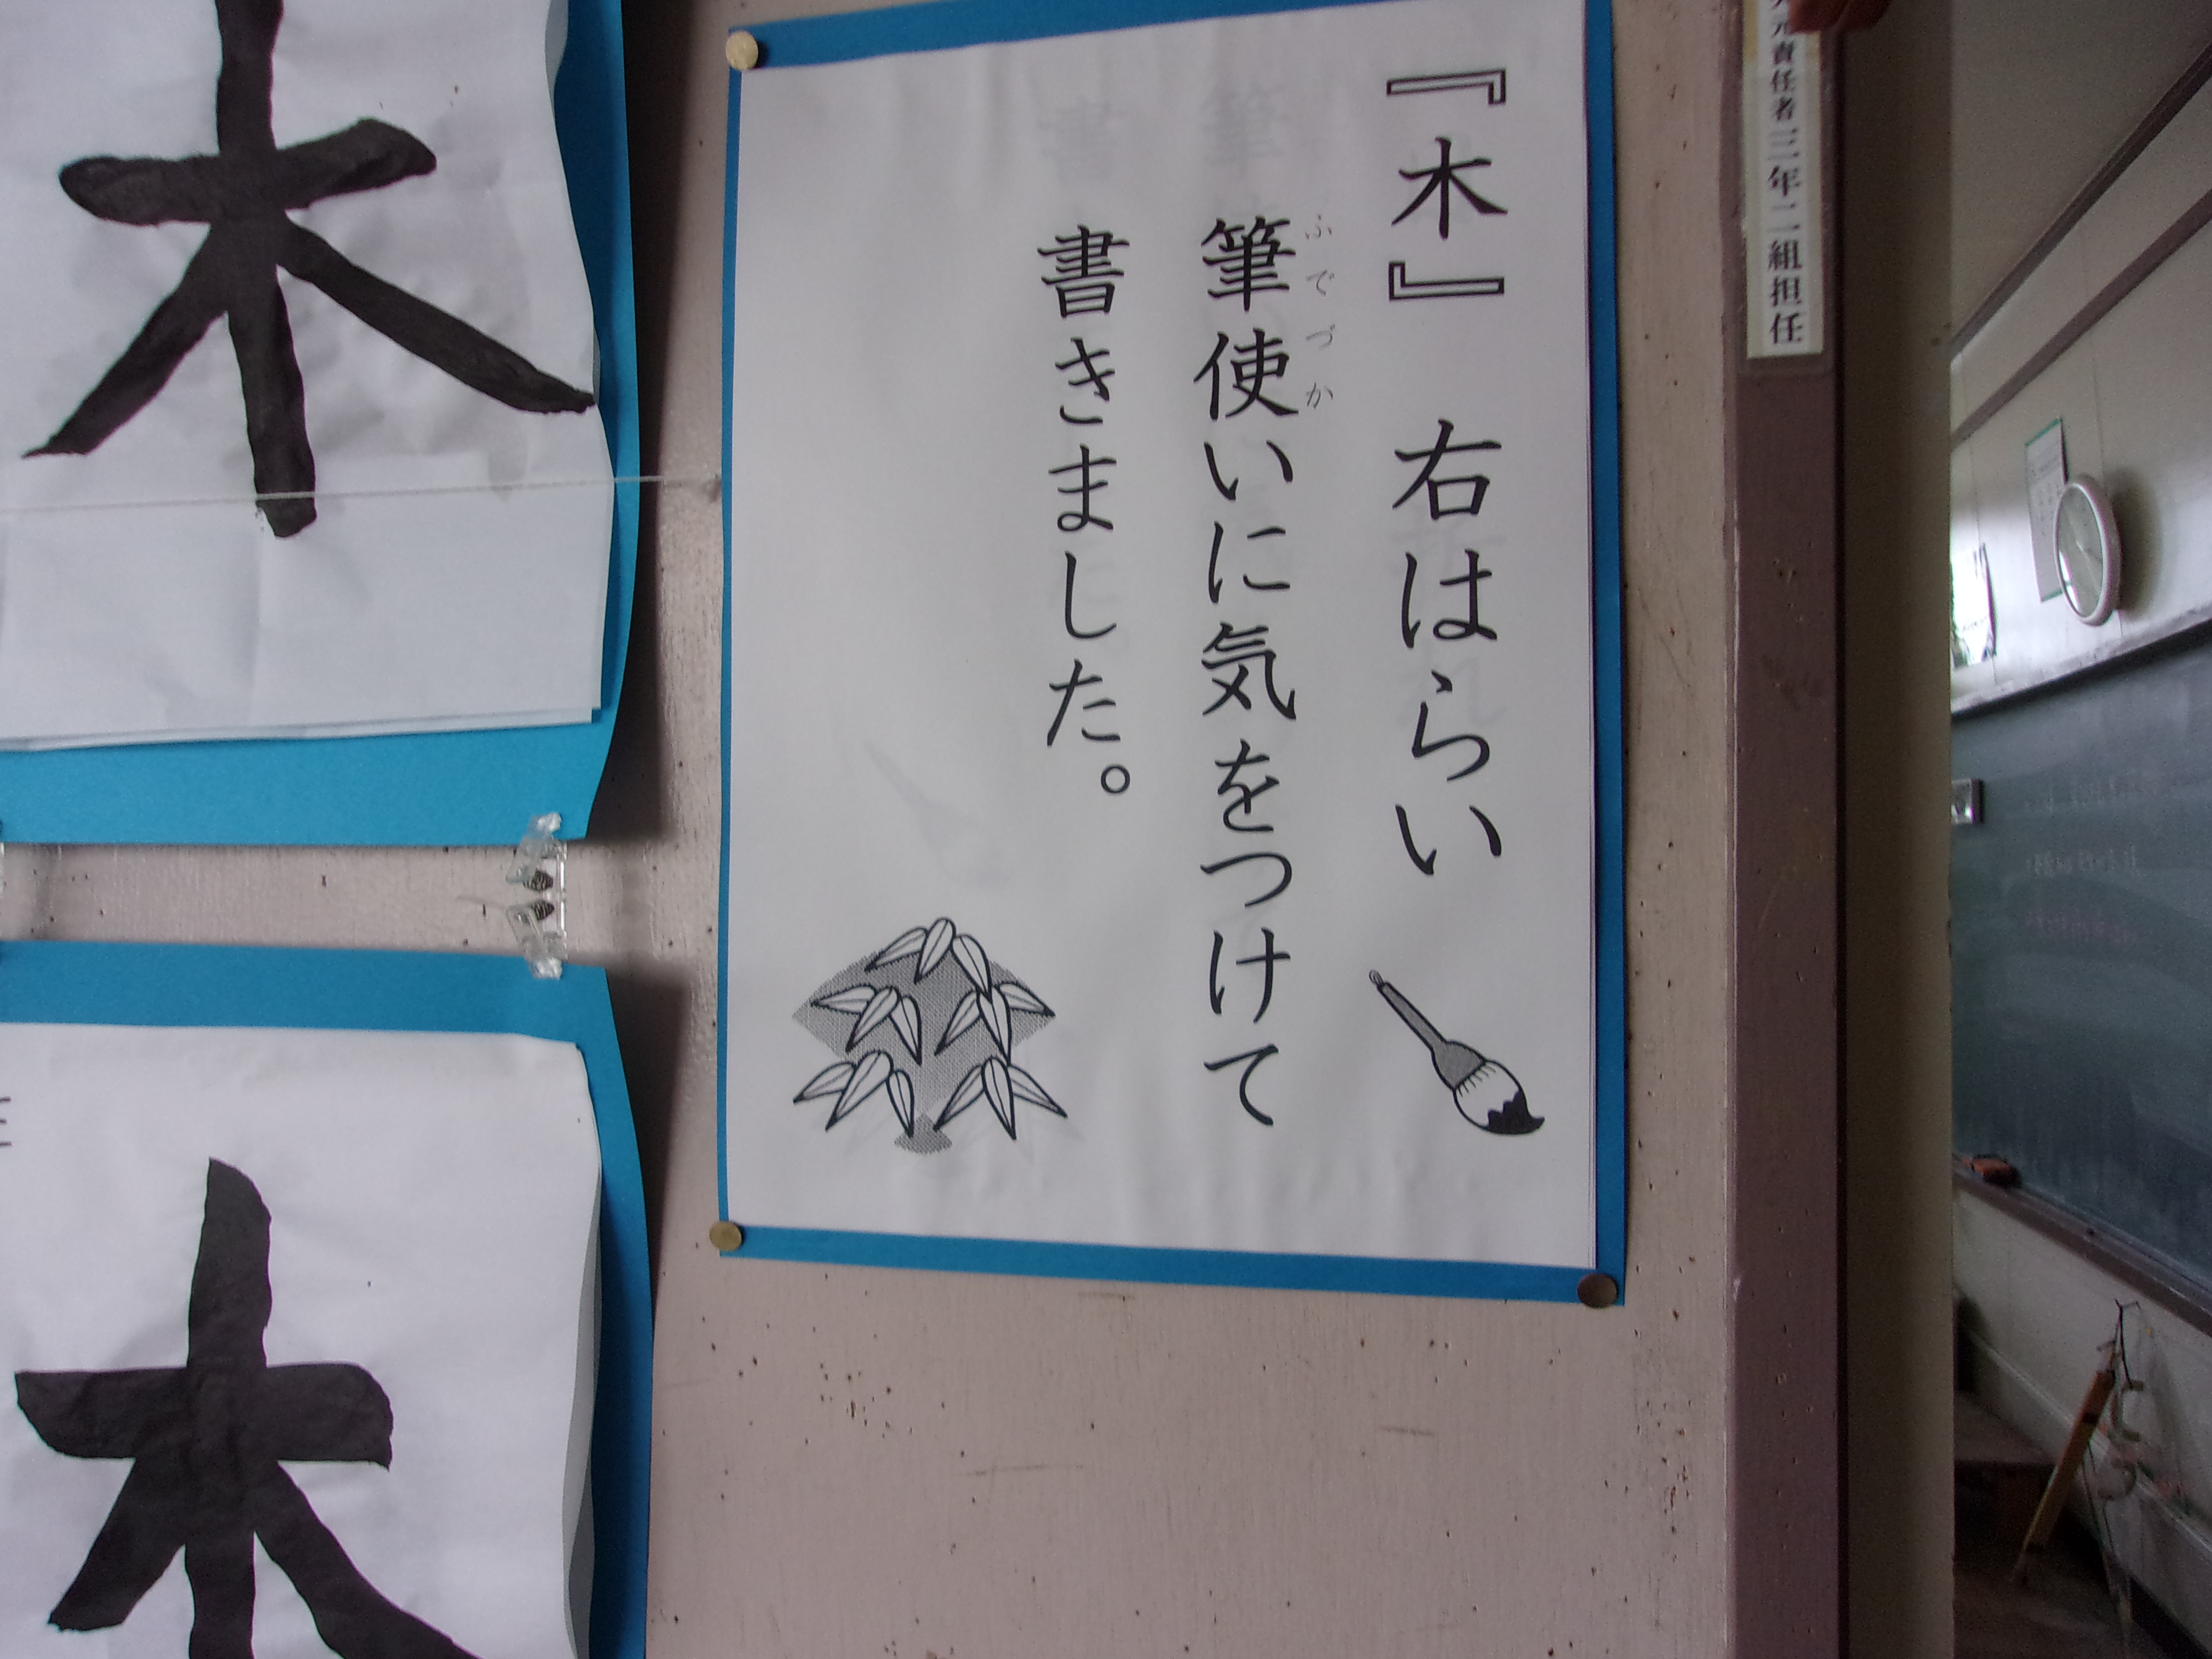 火元責任者 三年二組担任
『木』 右はらい
筆使いに気をつけて
ふでづか
書きました。
木
木